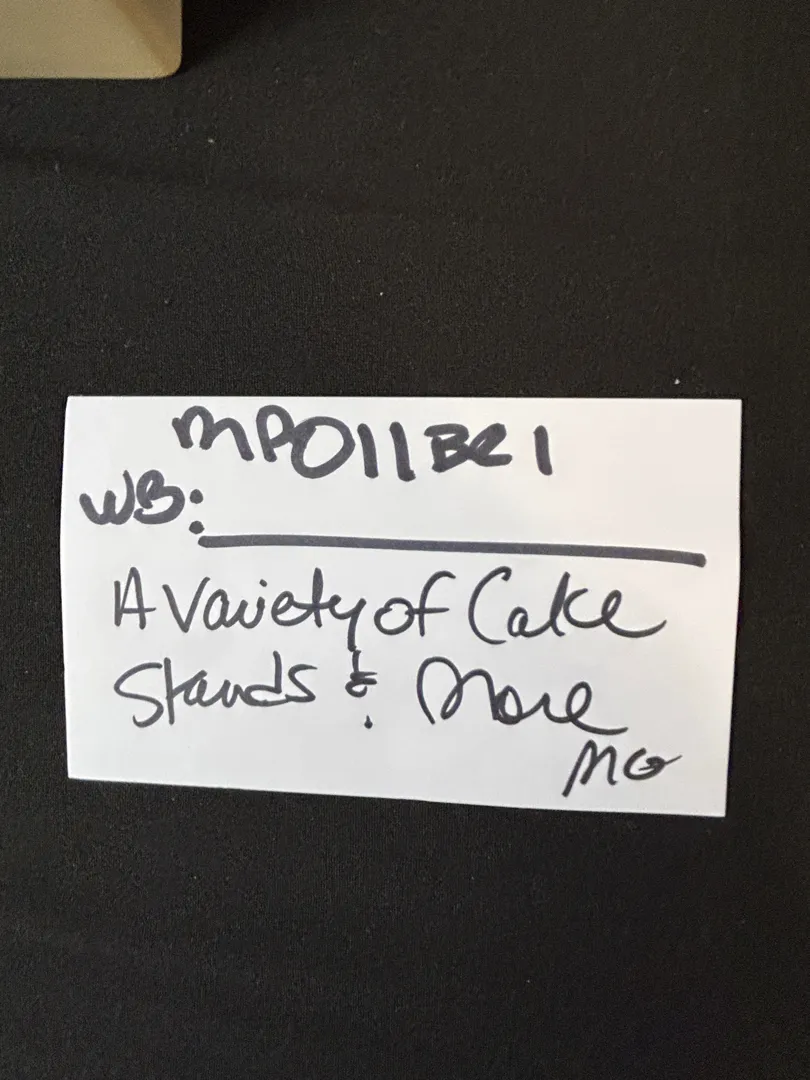 MPO11BR1
WB:
A Variety of Cake
Stands & More
MG